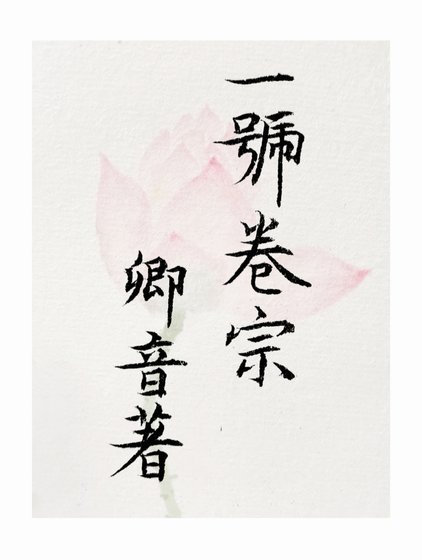 一號卷宗
卿音著